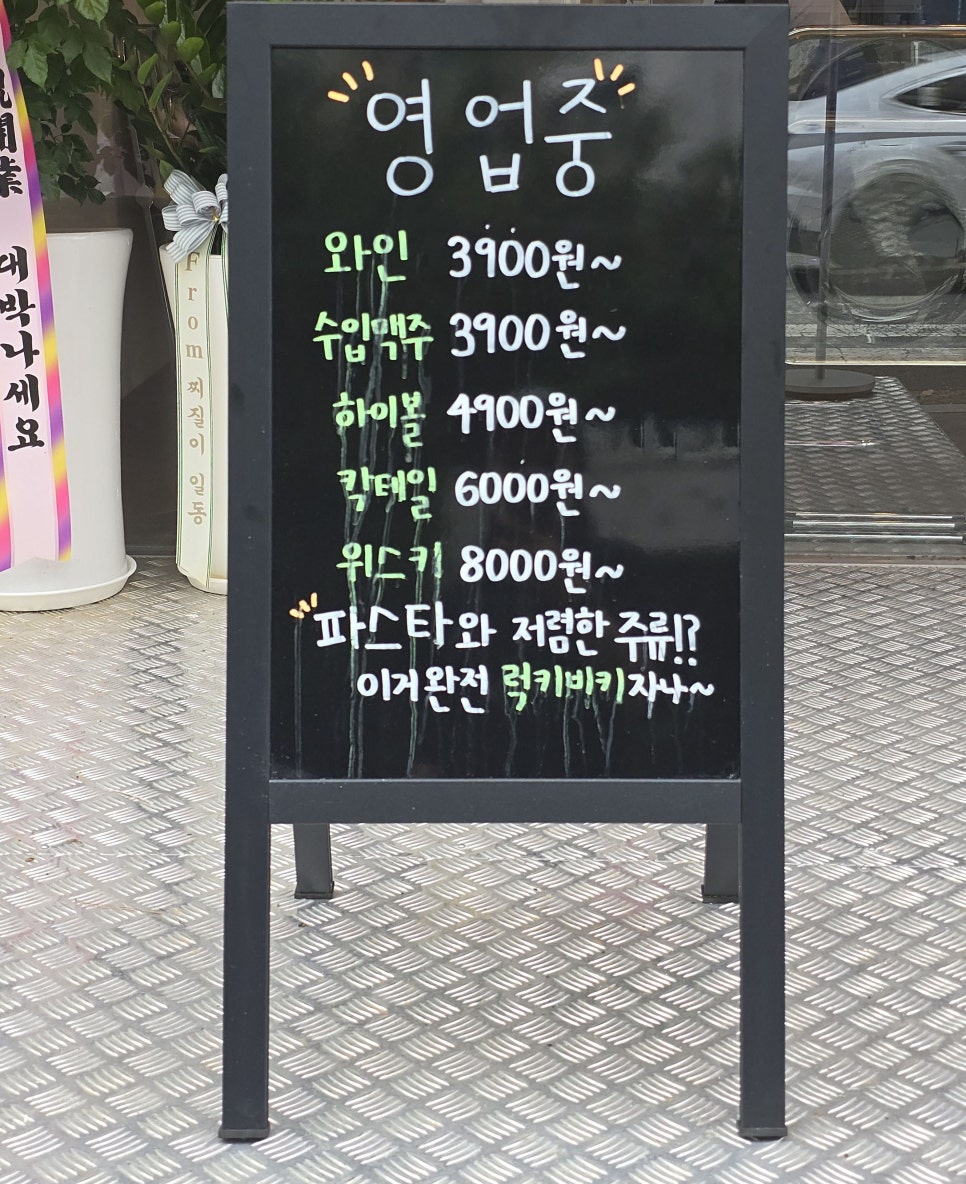 영업중
와인 3900원~
수입맥주 3900원~
하이볼 4900원~
칵테일 6000원~
위스키 8000원~
파스타와 저렴한 주류!?
이거 완전 럭키비키자나~
開業
대박나세요
From 찌질이 일동